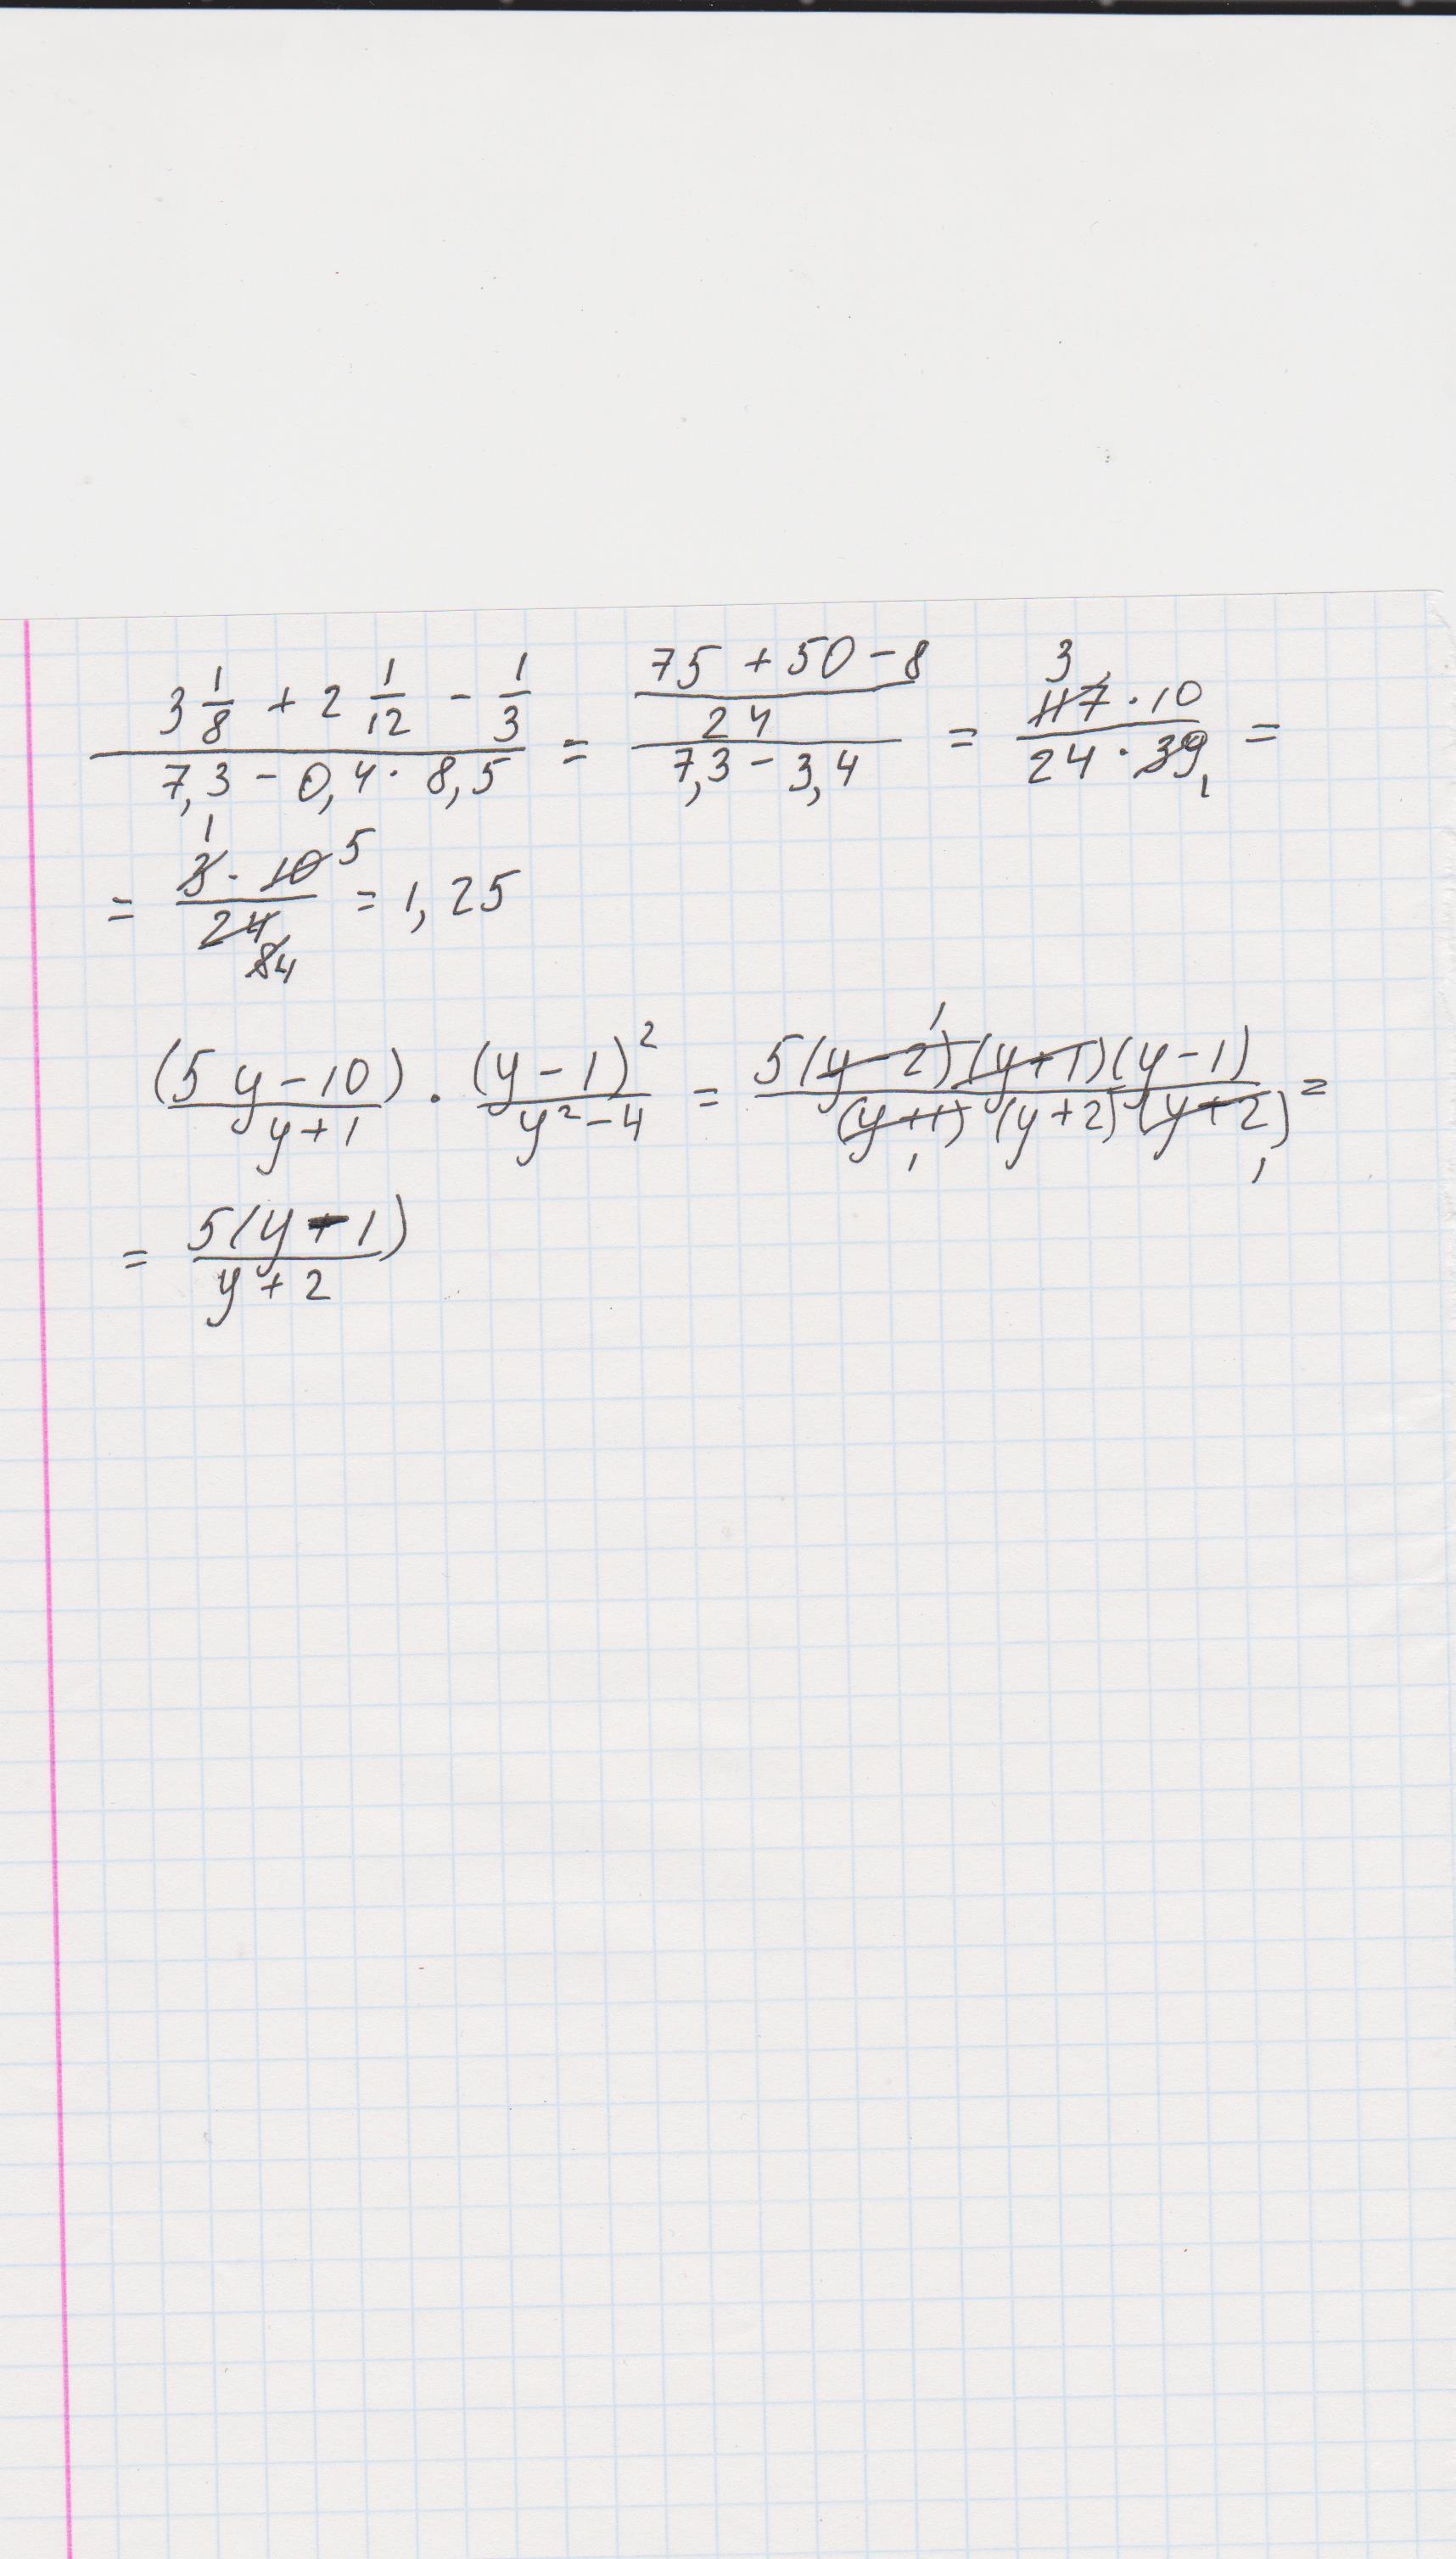 (3 1/8 + 2 1/12 - 1/3)/(7,3 - 0,4 · 8,5) = ((75 + 50 - 8)/24)/(7,3 - 3,4) = (117 3 · 10)/(24 · 39 1) =
= (3 1 · 10 5)/(24 8 4) = 1,25
(5y - 10)/(y + 1) · (y - 1)²/(y² - 4) = 5(y - 2) 1 (y + 1)(y - 1)/((y + 1) 1 (y + 2)(y + 2) 1) =
= 5(y - 1)/(y + 2)